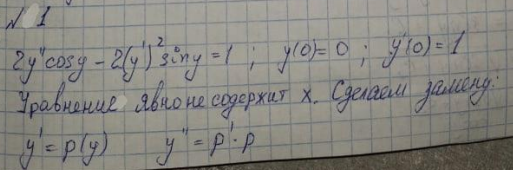 № 1
2y"cosy - 2(y')²siny = 1 ; y(0) = 0 ; y'(0) = 1
Уравнение явно не содержит x. Сделаем замену:
y' = p(y) y" = p'·p